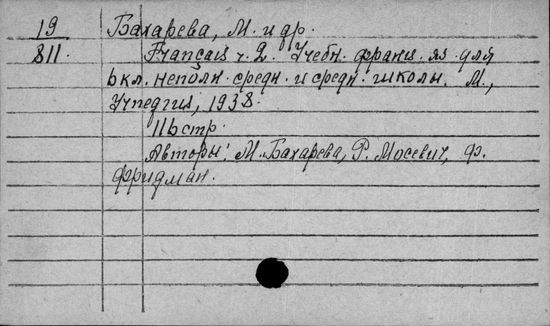 19 Бахарева, М. и др.
811. Français ч. 2. Учебн. франц. яз. для
6 кл. неполн. средн. и средн. школы. М.,
Учпедгиз, 1938.
116 стр.
Авторы: М. Бахарева, Р. Мосевич, Ф.
Фридман.